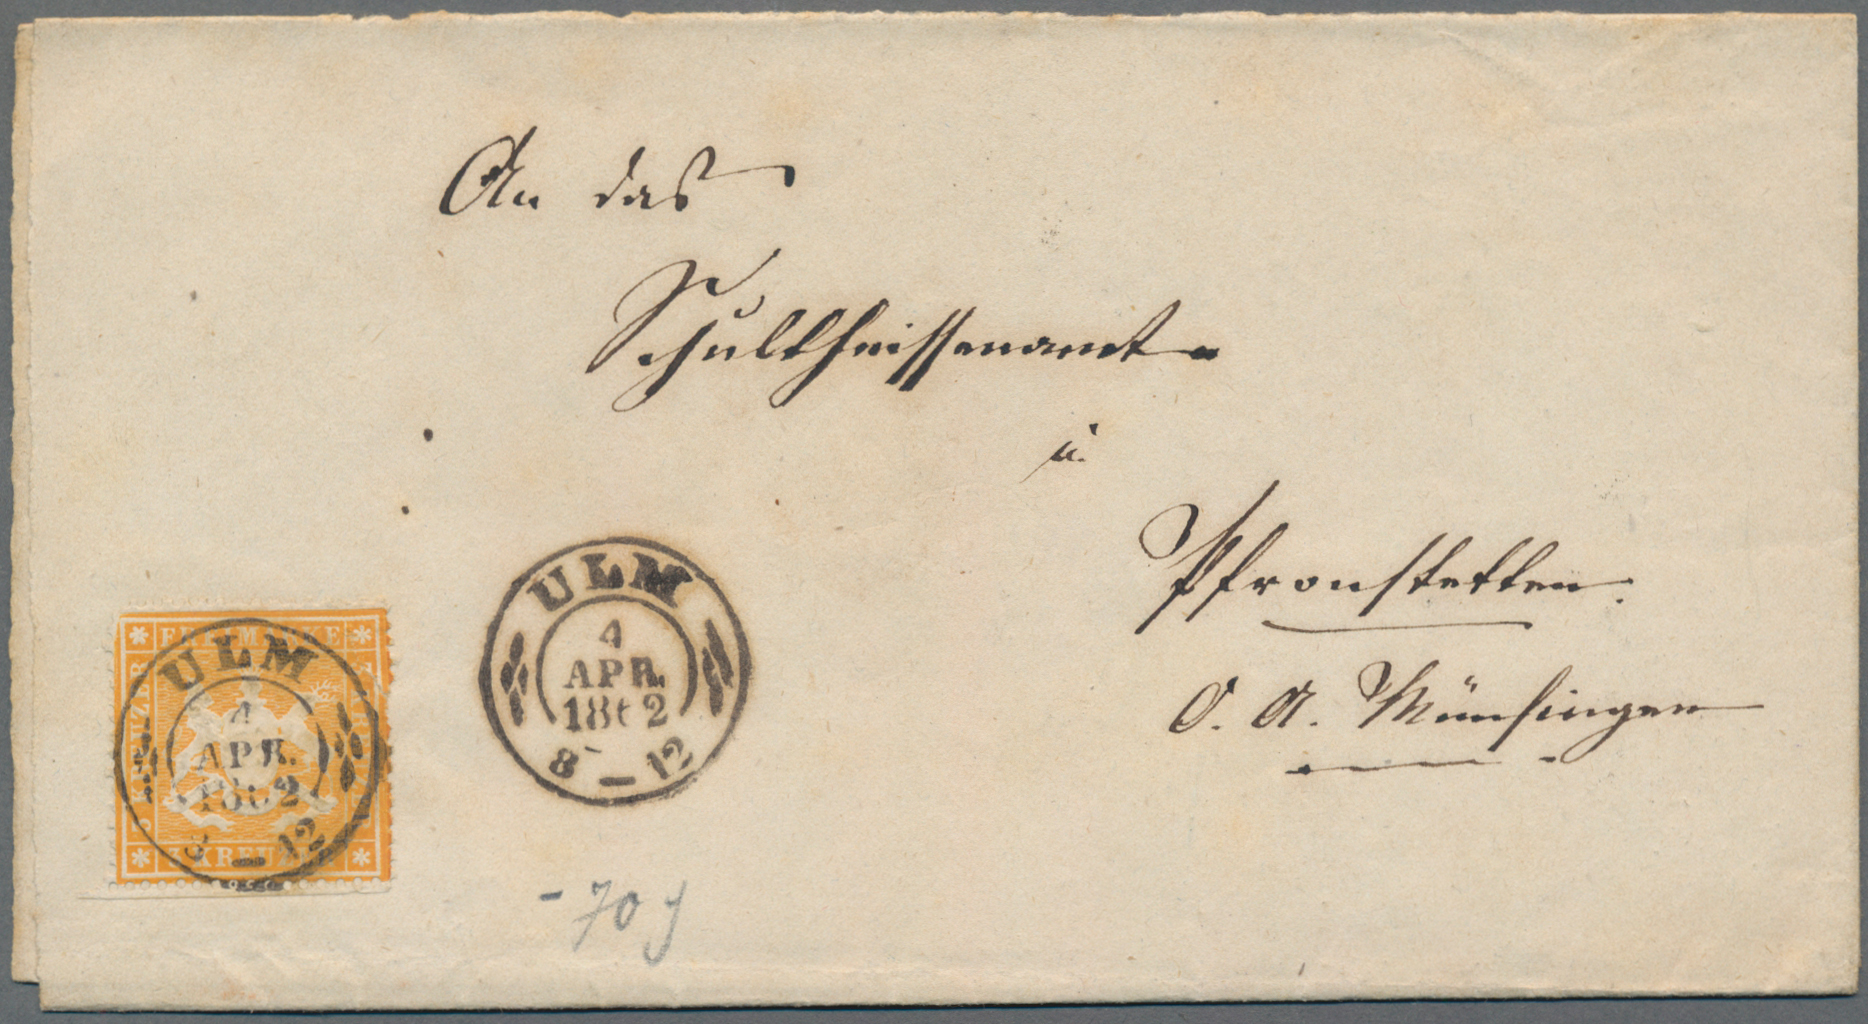 An das
Schultheissenamt
in
Pfronstetten.
O. A. Münsingen
ULM
4
APR.
1862
8 – 12
FREIMARKE
3 KREUZER
ULM
4
APR.
1862
8 – 12
- 70